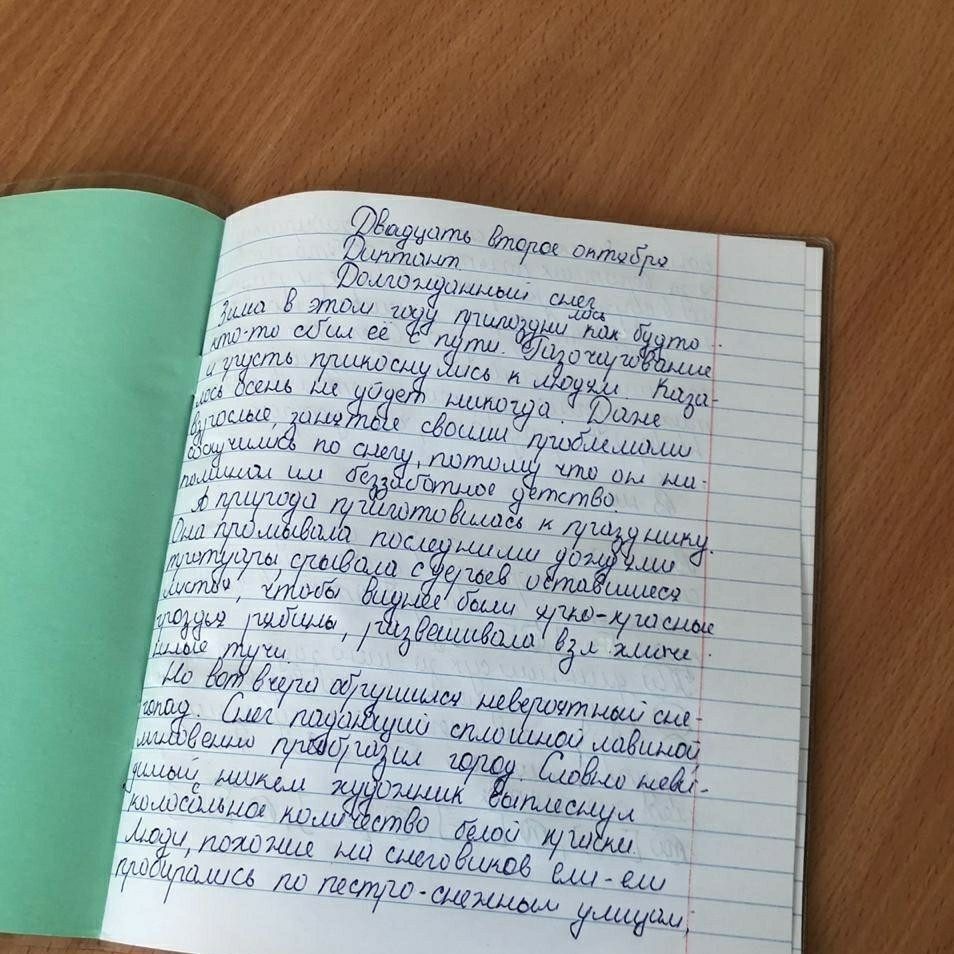 Двадцать второе октября
Диктант.
Долгожданный снег
Зима в этом году припозднилась как будто
кто-то сбил её с пути. Разочарование
и грусть прикоснулись к людям. Каза-
лось осень не уйдет никогда. Даже
взрослые, занятые своими проблемами
соскучились по снегу, потому что он на-
поминал им беззаботное детство.
А природа приготовилась к празднику.
Она промывала последними дождями
тротуары срывала с деревьев оставшиеся
листья, чтобы виднее были ярко-красные
гроздья рябины, развешивала
ные тучи
Но вот вчера обрушился невероятный сне-
гопад. Снег падающий сплошной лавиной
мгновенно преобразил город. Словно неви-
димый никем художник выплеснул
колосальное количество белой краски.
Люди, похожие на снеговиков ели-ели
пробирались по пестро-снежным улицам;